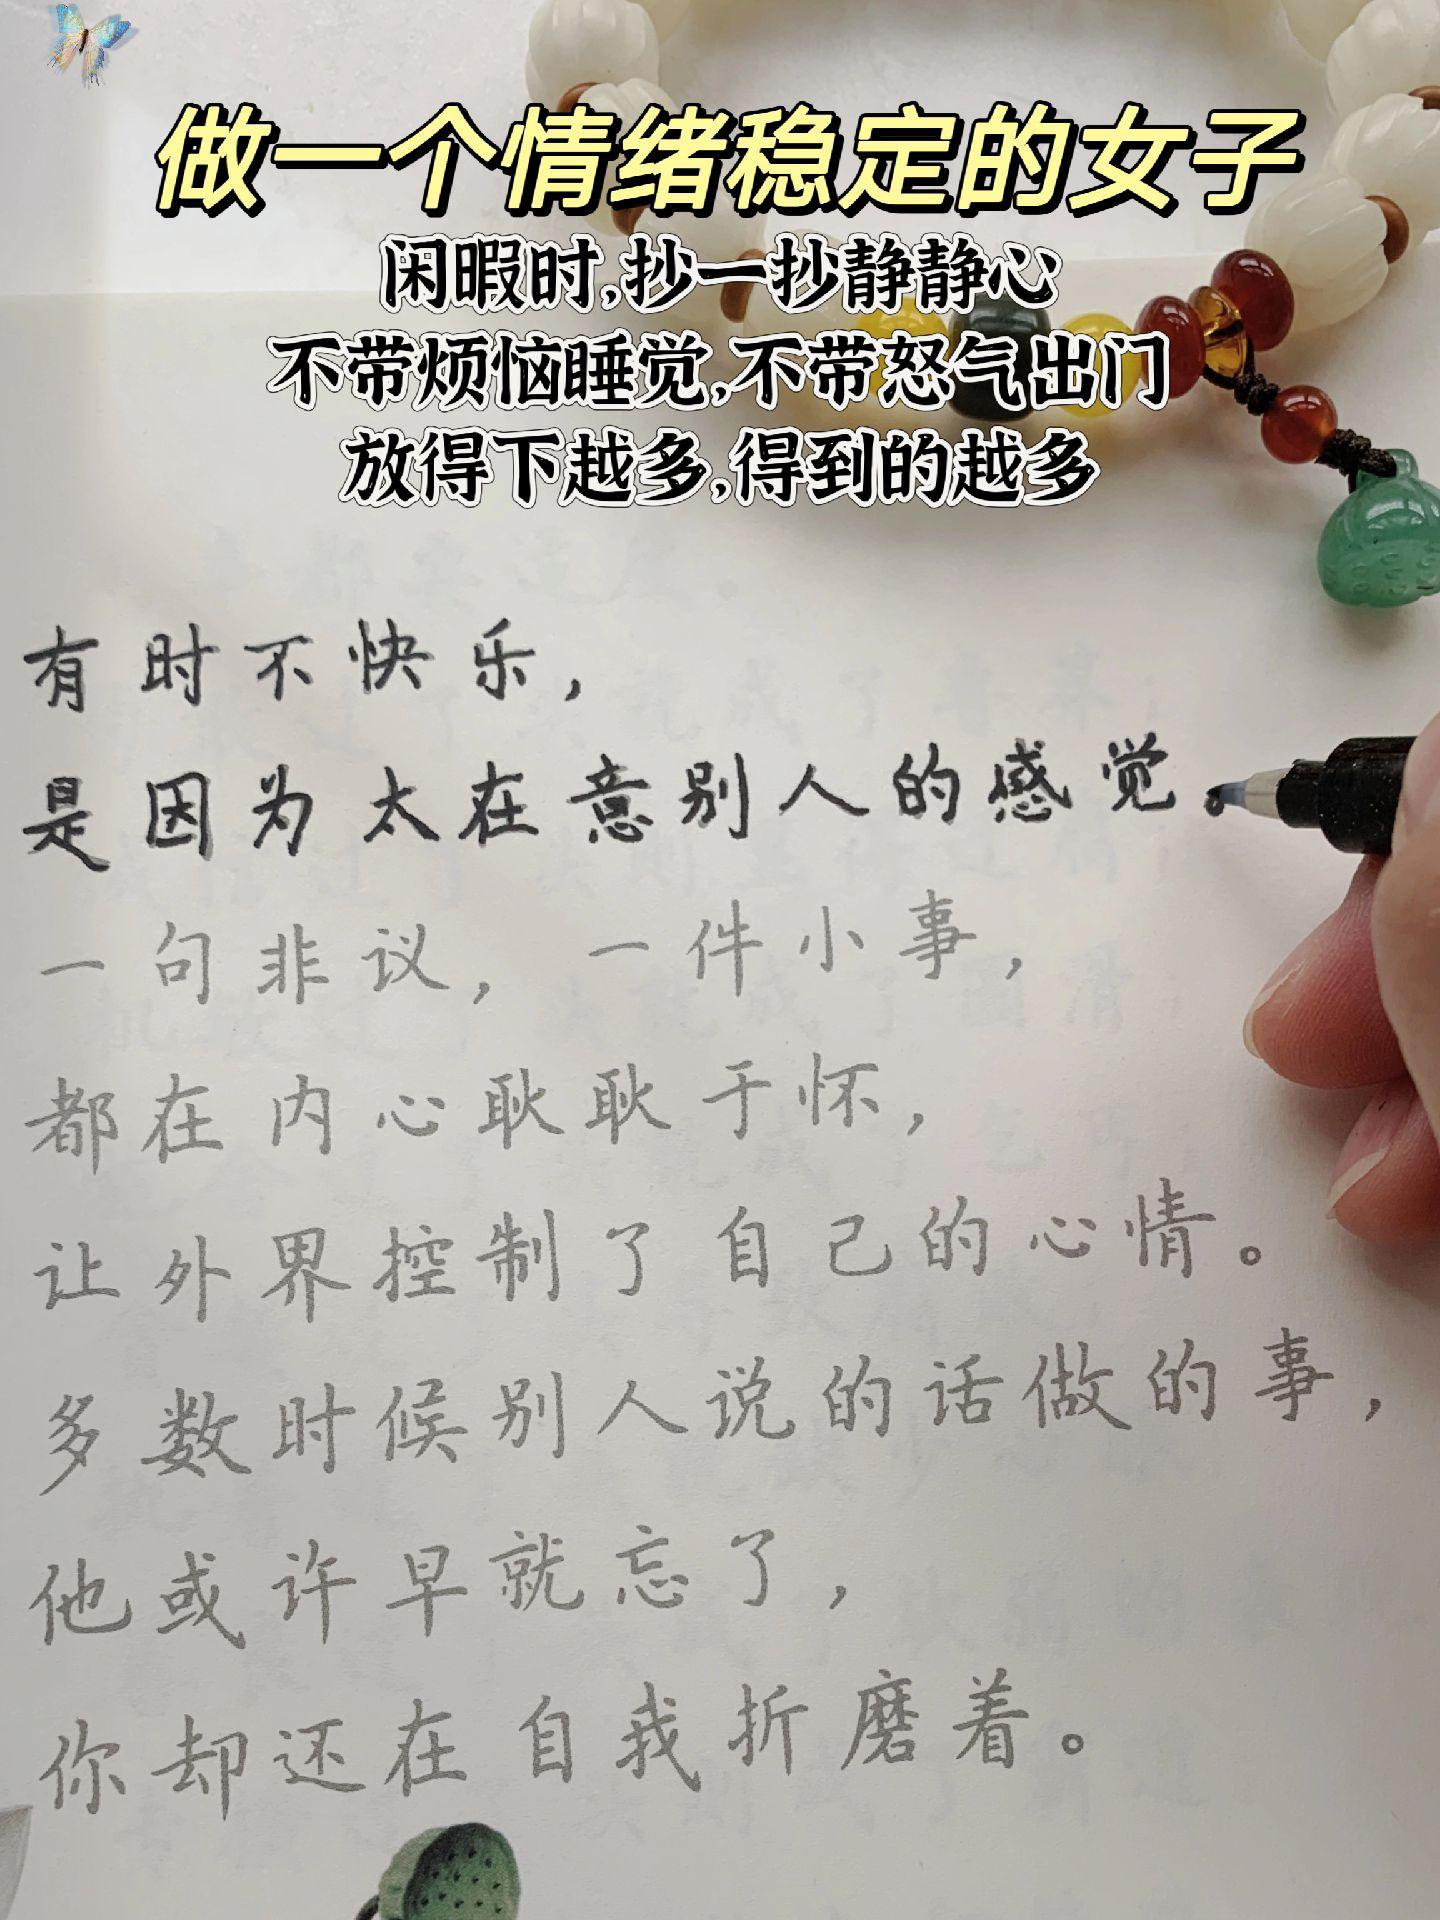 做一个情绪稳定的女子
闲暇时,抄一抄静静心
不带烦恼睡觉,不带怒气出门
放得下越多,得到的越多
有时不快乐，
是因为太在意别人的感觉。
一句非议，一件小事，
都在内心耿耿于怀，
让外界控制了自己的心情。
多数时候别人说的话做的事，
他或许早就忘了，
你却还在自我折磨着。